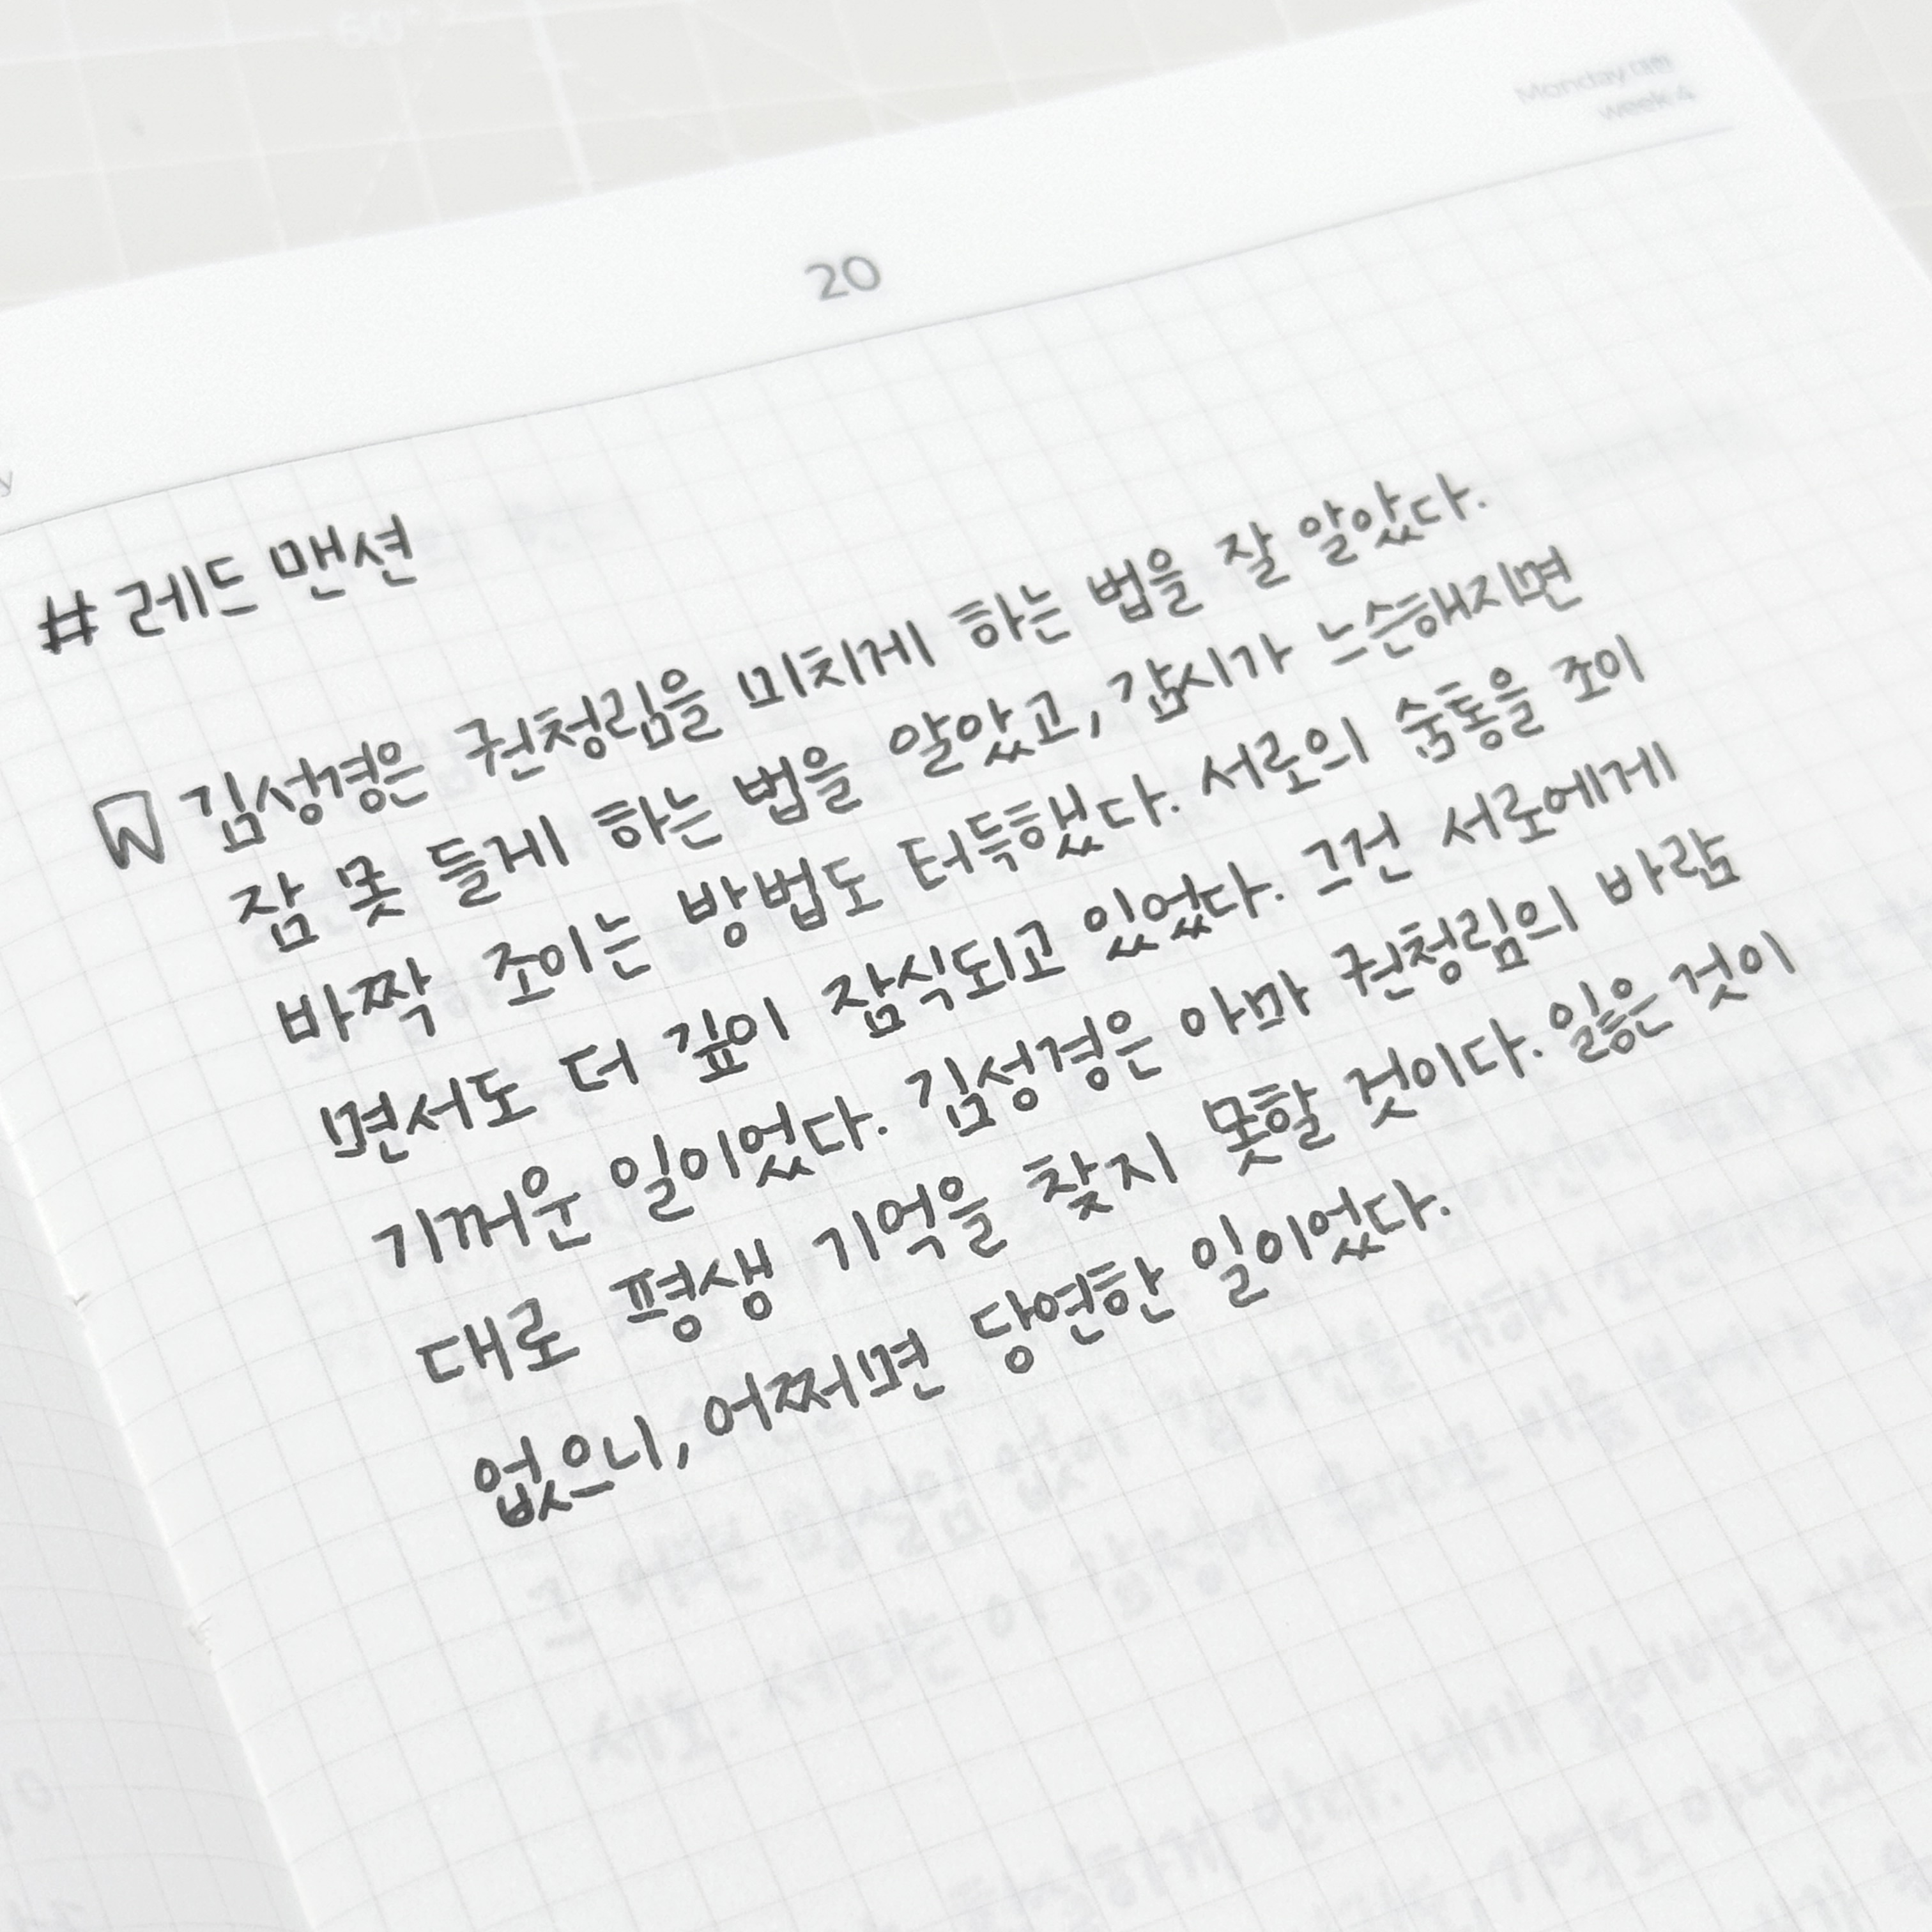 Monday
week 4
20
# 레드 맨션
김성경은 권청림을 미치게 하는 법을 잘 알았다.
잠 못 들게 하는 법을 알았고, 감시가 느슨해지면
바짝 조이는 방법도 터득했다. 서로의 숨통을 조이
면서도 더 깊이 잠식되고 있었다. 그건 서로에게
기꺼운 일이었다. 김성경은 아마 권청림의 바람
대로 평생 기억을 찾지 못할 것이다. 잃은 것이
없으니, 어쩌면 당연한 일이었다.